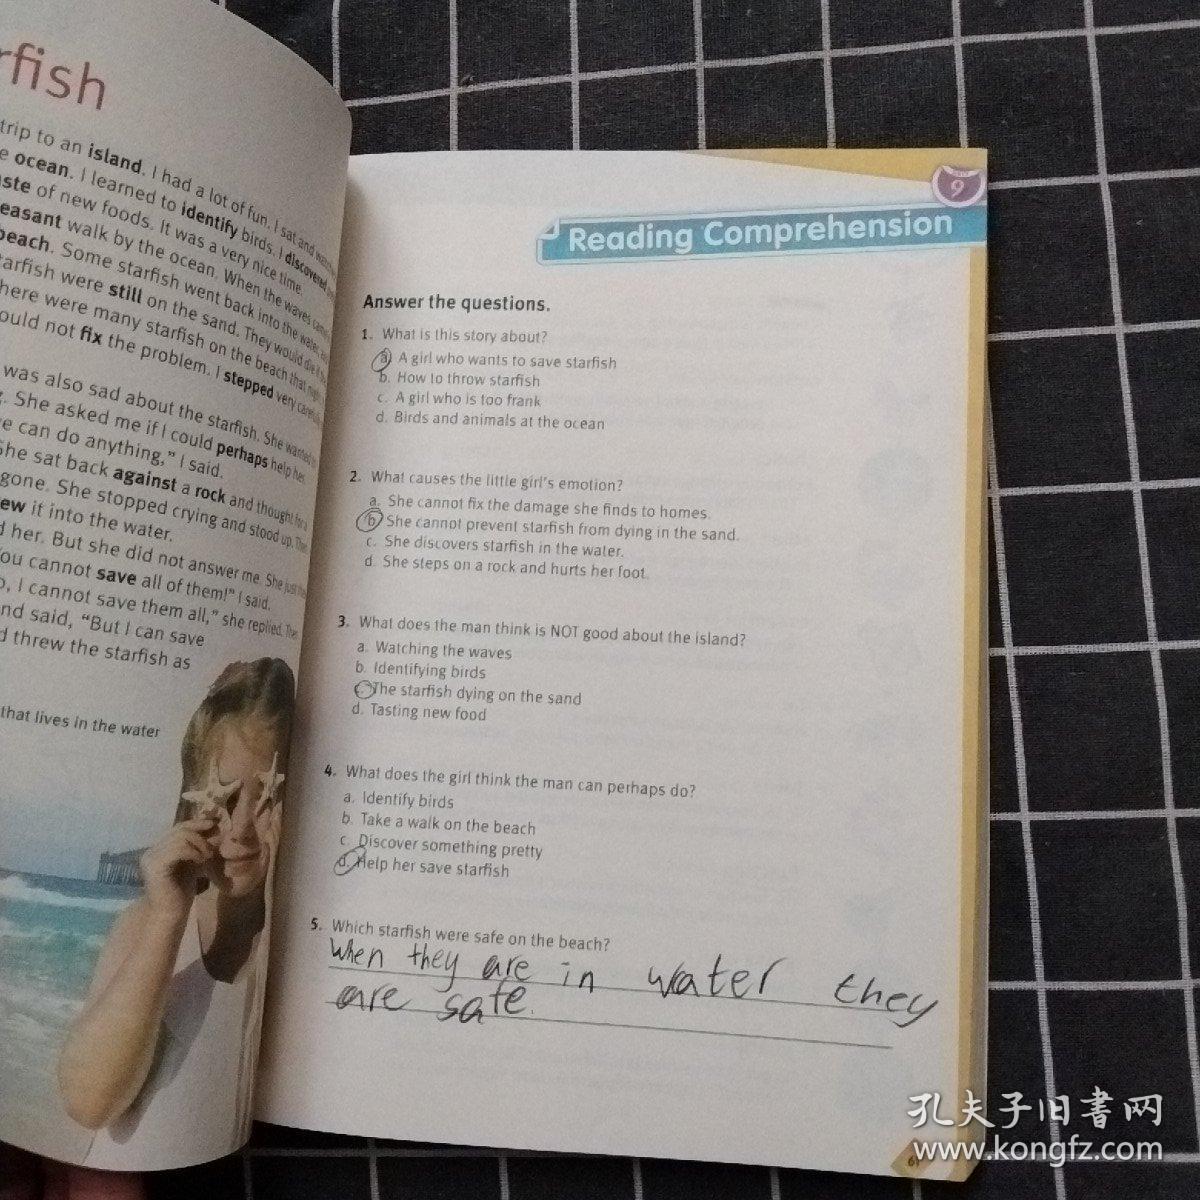 rfish
trip to an island. I had a lot of fun. I sat and
ocean. I learned to identify birds. I discovered
of new foods. It was a very nice time.
walk by the ocean. When the waves
beach. Some starfish went back into the water,
starfish were still on the sand. They would die
There were many starfish on the beach that night
could not fix the problem. I stepped very carefully
was also sad about the starfish. She wanted
She asked me if I could perhaps help her.
can do anything," I said.
She sat back against a rock and thought for a
gone. She stopped crying and stood up. Then
it into the water.
her. But she did not answer me. She just
You cannot save all of them!" I said.
I cannot save them all," she replied. Then
and said, "But I can save
threw the starfish as
that lives in the water
9
Reading Comprehension
Answer the questions.
1. What is this story about?
a. A girl who wants to save starfish
b. How to throw starfish
c. A girl who is too frank
d. Birds and animals at the ocean
2. What causes the little girl's emotion?
a. She cannot fix the damage she finds to homes.
b. She cannot prevent starfish from dying in the sand.
c. She discovers starfish in the water.
d. She steps on a rock and hurts her foot.
3. What does the man think is NOT good about the island?
a. Watching the waves
b. Identifying birds
c. The starfish dying on the sand
d. Tasting new food
4. What does the girl think the man can perhaps do?
a. Identify birds
b. Take a walk on the beach
c. Discover something pretty
d. Help her save starfish
5. Which starfish were safe on the beach?
When they are in water they
are safe.
孔夫子旧书网
www.kongfz.com